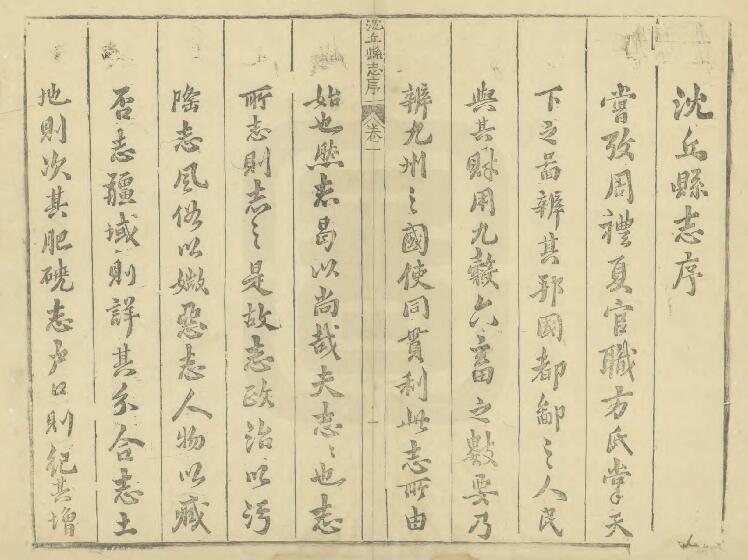 沈丘縣志序
嘗攷周禮夏官職方氏掌天
下之啚辨其邦國都鄙之人民
與其財用九穀六畜之數要乃
辨九州之國使同貫利此志所由
沈丘縣志序 卷一 一
始也然志曷以尚哉夫志〻也志
所志則志之是故志政治以污
隆志風俗以媺惡志人物以臧
否志疆域則詳其分合志土
地則次其肥磽志戶口則紀其增